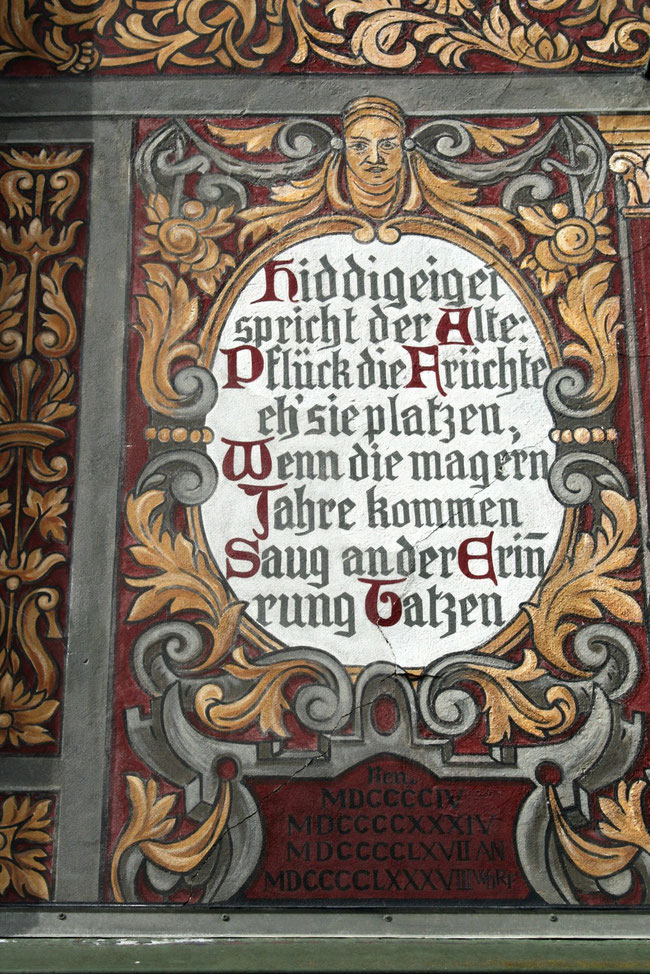 Hiddigeigei
spricht der Alte:
Pflück die Früchte
eh' sie platzen,
Wenn die magern
Jahre kommen
Saug an der Erin̄
rung Tatzen
Ren.
MDCCCCIX
MDCCCCXXXIV
MDCCCCLXVII AN
MDCCCCLXXXVIII